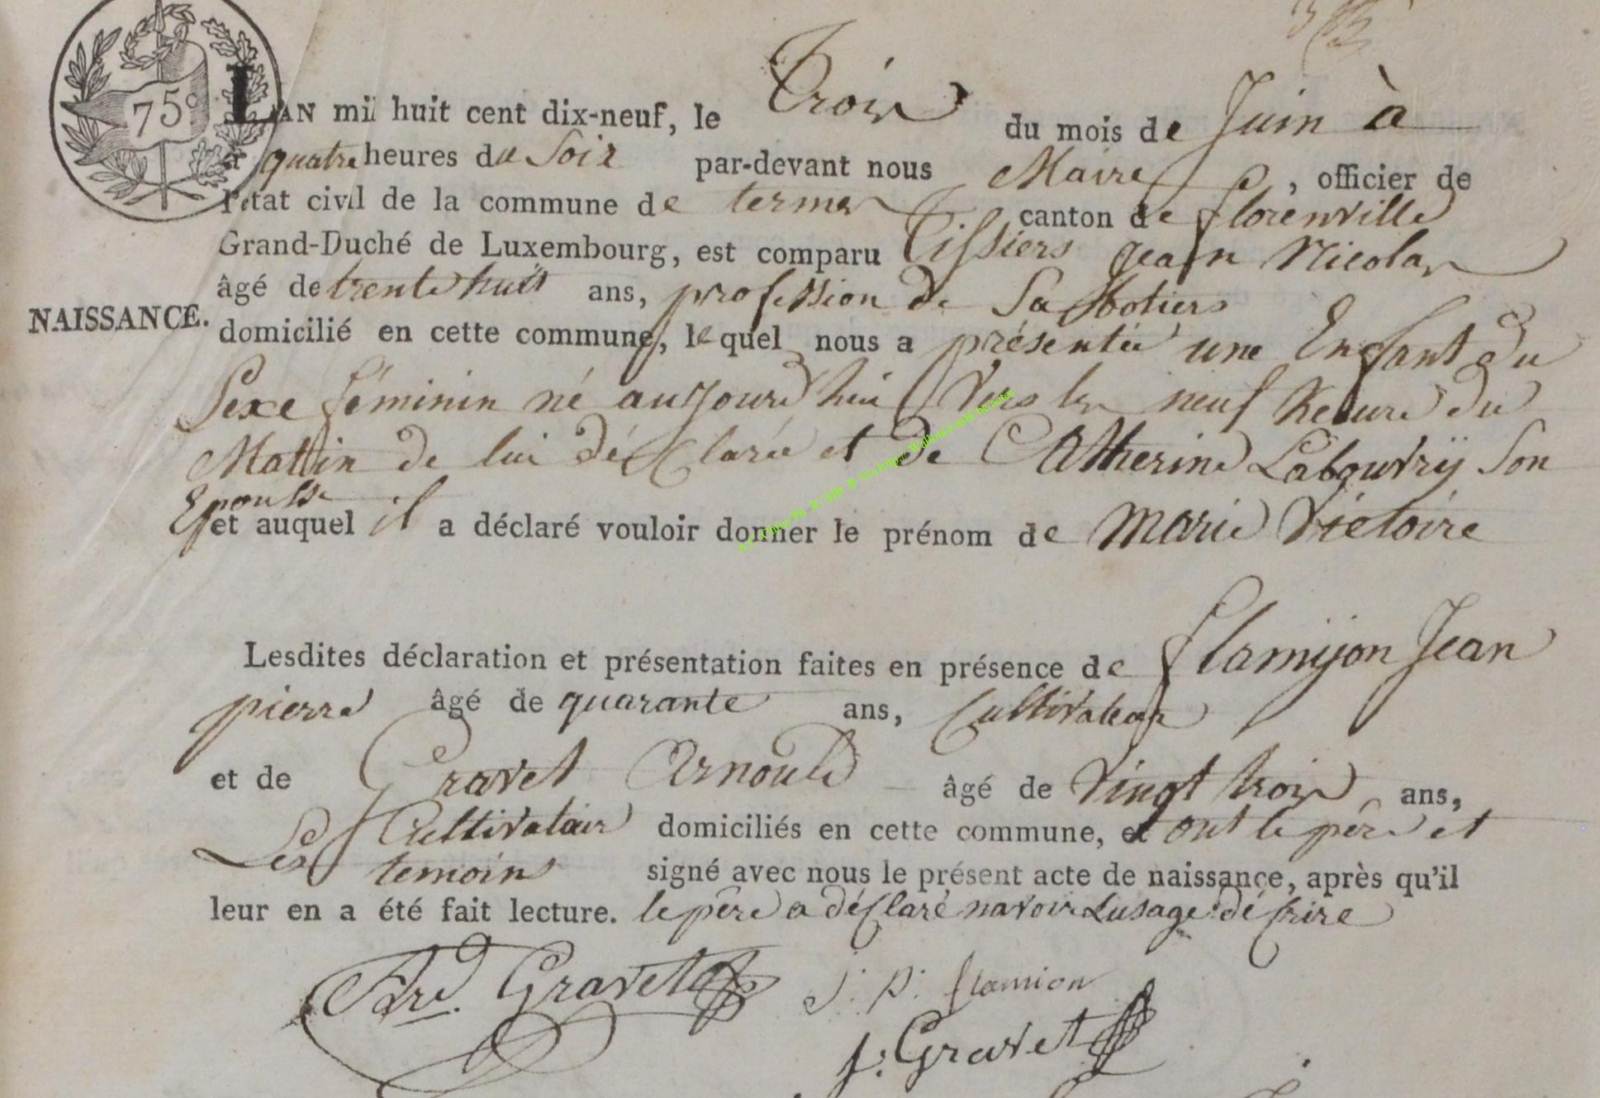 75c
L'AN mil huit cent dix-neuf, le Trois du mois de Juin à
à quatre heures du Soir par-devant nous Maire, officier de
l'état civil de la commune de termes canton de florenville
Grand-Duché de Luxembourg, est comparu Tissiers Jean Nicolas
âgé de trente huit ans, profession de Sabbotiers
NAISSANCE.
domicilié en cette commune, lequel nous a présentée une Enfant du
Sexe féminin né aujourd'hui vers les neuf heure du
Mattin de lui déclarée et de Catherine Labouvrÿ son
Epousse
et auquel il a déclaré vouloir donner le prénom de Marie Victoire
Lesdites déclaration et présentation faites en présence de flamijon Jean
pierre âgé de quarante ans, Cultivateur
et de Gravet Arnould âgé de vingt trois ans,
Cultivateur domiciliés en cette commune, et ont le père et
Les temoins signé avec nous le présent acte de naissance, après qu'il
leur en a été fait lecture. le père a déclaré navoir Lusage décrire
Ard. Gravet
J. P. flamion
J. Gravet